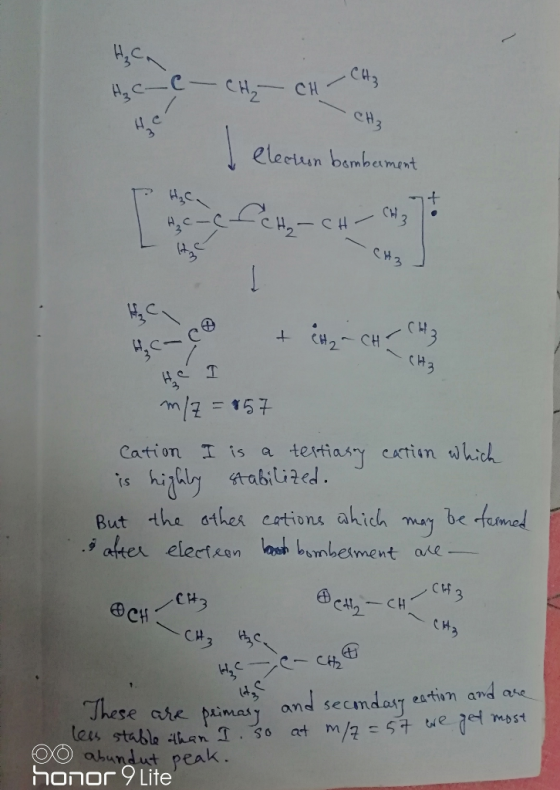 H3C
H3C—C—CH2—CH—CH3
H3C CH3
electron bomberment
H3C
H3C—C—CH2—CH—CH3
H3C CH3
+•
H3C
H3C—C⊕ + •CH2—CH—CH3
H3C I CH3
m/z = 57
Cation I is a tertiary cation which
is highly stabilized.
But the other cations which may be formed
after electron bomberment are —
⊕CH—CH3 ⊕CH2—CH—CH3
CH3 CH3
H3C
H3C—C—CH2⊕
H3C
These are primary and secondary cation and are
less stable than I. so at m/z = 57 we get most
abundut peak.
honor 9 Lite